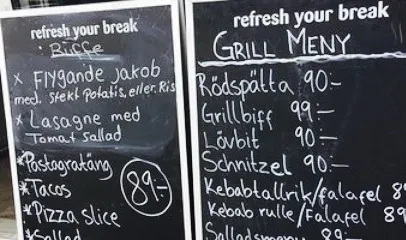 refresh your break
Biffe
x Flygande Jakob
med. stekt potatis, eller. Ris
x Lasagne med
Tomat sallad
*Pastagratäng
*Tacos
*Pizza Slice
*Sallad
89:-
refresh your break
GRILL MENY
Rödspätta 90:-
Grillbiff 99:-
Lövbit 90:-
Schnitzel 90:-
Kebabtallrik/falafel 89
Kebab rulle/Falafel 89
Salladsmeny 89:-